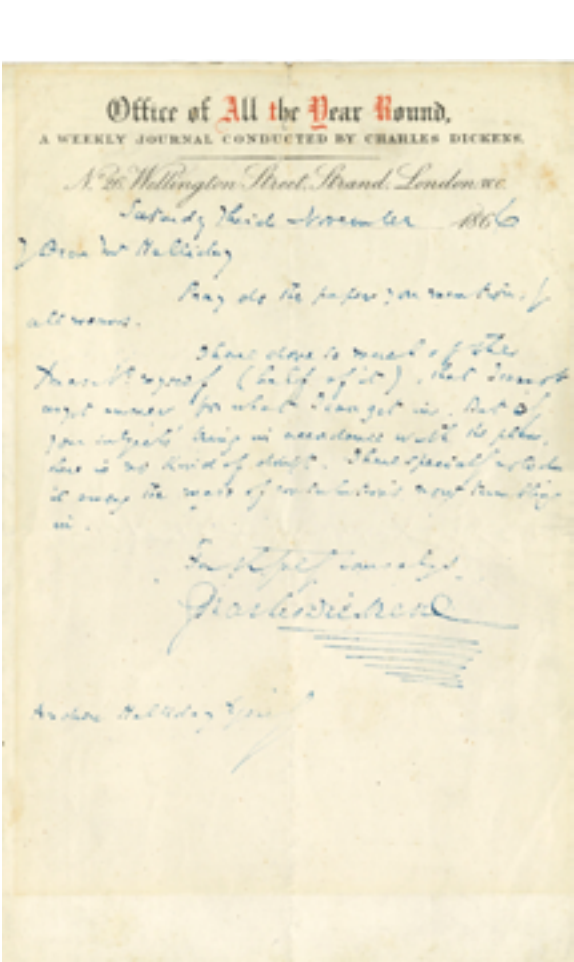 Office of All the Year Round,
A WEEKLY JOURNAL CONDUCTED BY CHARLES DICKENS.
No. 26, Wellington Street, Strand, London. W.C.
Saturday Third November 1866
Dear Mr Halliday
Pray do the paper you mention, by
all means.
I have done so much of the
Xmas No. myself (half of it), that I cannot
yet answer for what I can get in. But of
your subjects being in accordance with the plan,
there is no kind of doubt. I have specially noted
it among the mass of contributions now tumbling
in.
Faithfully yours always
Charles Dickens
Andrew Halliday Esquire